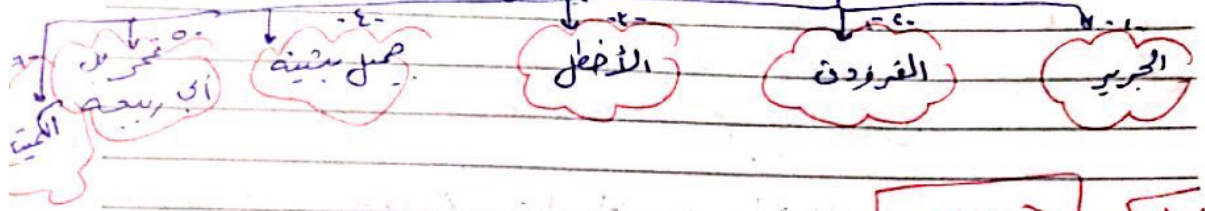 -١-
الجرير
-٢-
الفرزدق
-٣-
الأخطل
-٤-
جميل بثينه
-٥-
عمر بن
أبي ربيعه
-٦-
الكميت